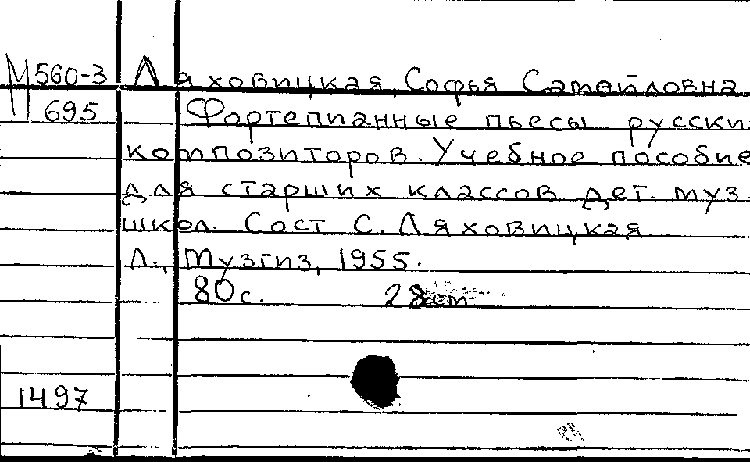 М560-3 Ляховицкая, Софья Самойловна
695 Фортепианные пьесы русски
композиторов. Учебное пособие
для старших классов дет. муз.
школ. Сост С. Ляховицкая
Л., Музгиз, 1955.
80с.
1497